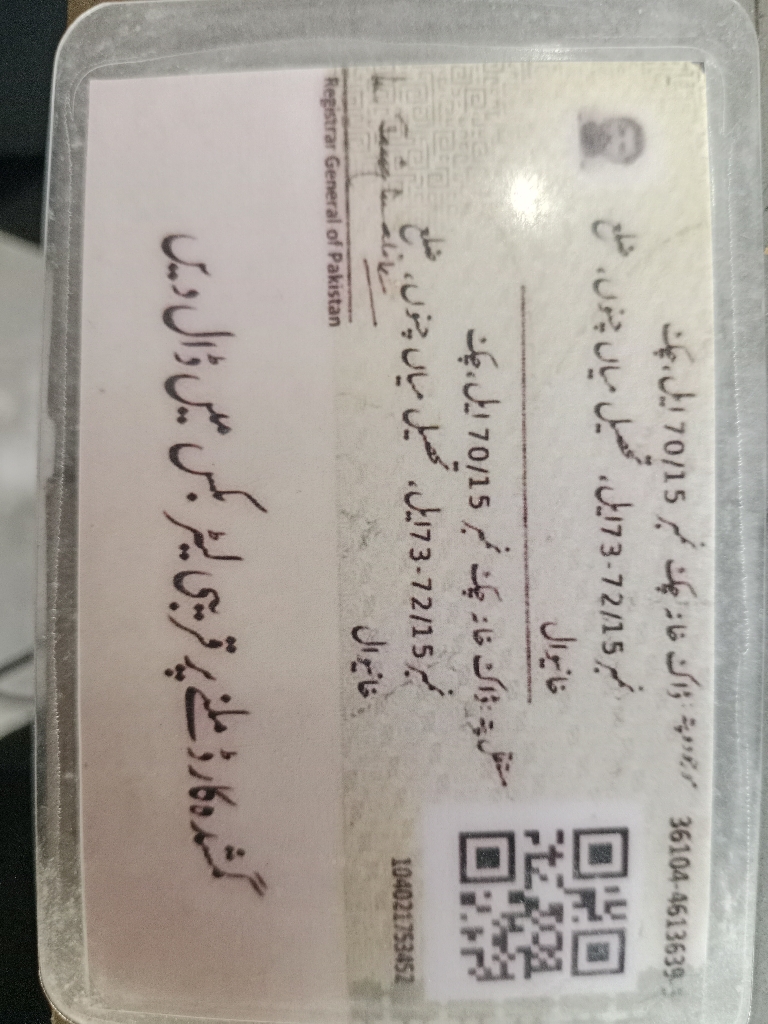 36104-4613639-
موجودہ پتہ: ڈاک خانہ چک نمبر 70/15 ایل، چک
نمبر 72/15-73ایل، تحصیل میاں چنوں، ضلع
خانیوال
مستقل پتہ: ڈاک خانہ چک نمبر 70/15 ایل، چک
نمبر 72/15-73ایل، تحصیل میاں چنوں، ضلع
خانیوال
104021753452
Registrar General of Pakistan
گمشدہ کارڈ ملنے پر قریبی لیٹر بکس میں ڈال دیں